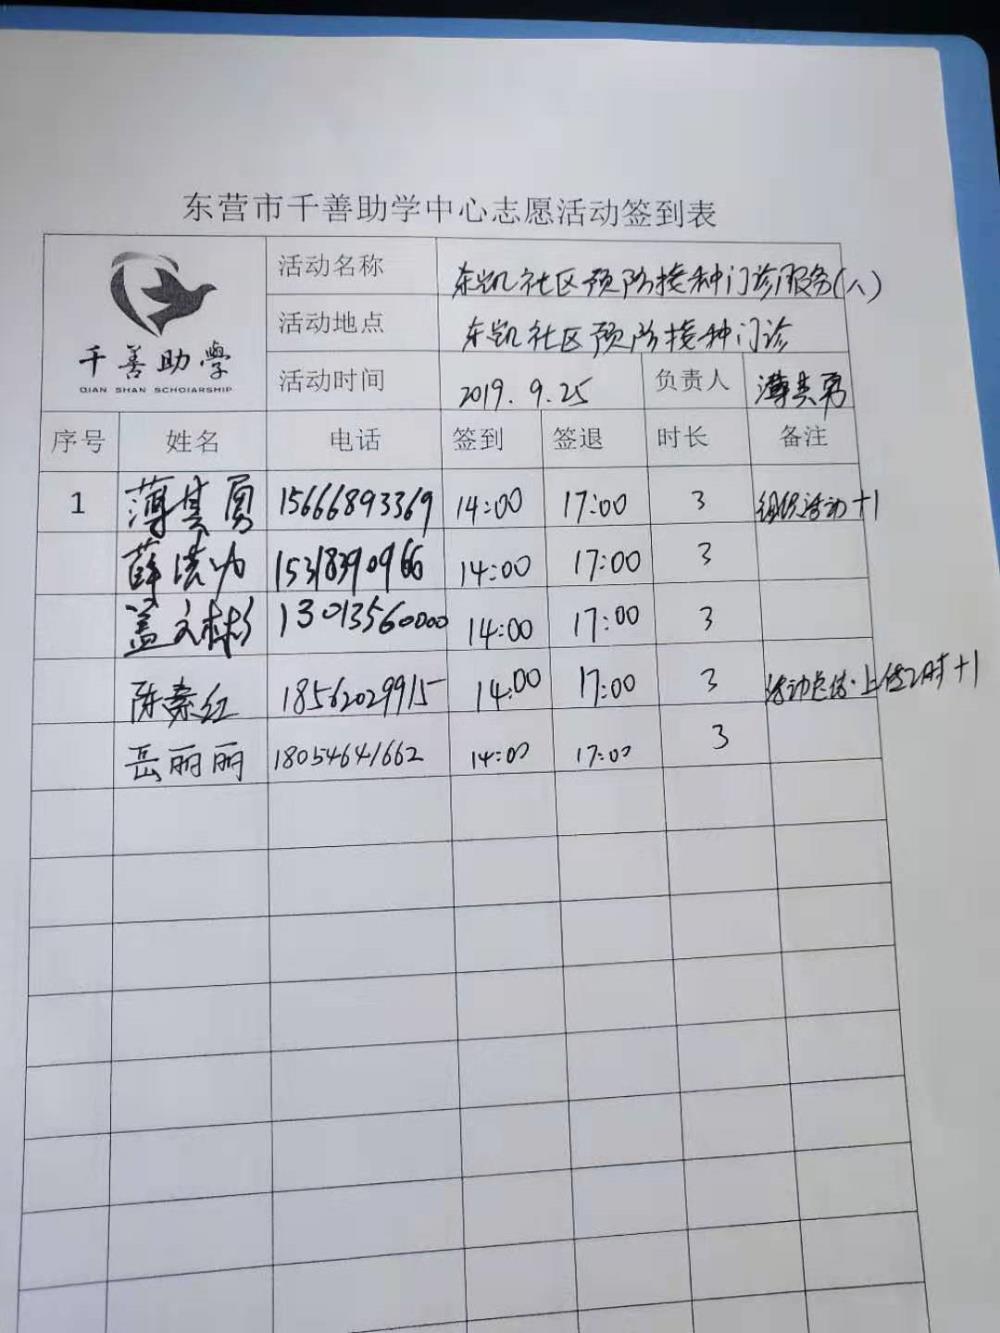 东营市千善助学中心志愿活动签到表
千善助學
QIAN SHAN SCHOIARSHIP
活动名称 东凯社区预防接种门诊服务(八)
活动地点 东凯社区预防接种门诊
活动时间 2019.9.25 负责人 薄其勇
序号 姓名 电话 签到 签退 时长 备注
1 薄其勇 15666893369 14:00 17:00 3 组织活动+1
薛洪 15318390966 14:00 17:00 3
盖文彬 13013560000 14:00 17:00 3
陈素红 18562029915 14:00 17:00 3 活动总结.上传2时+1
岳丽丽 18054641662 14:00 17:00 3